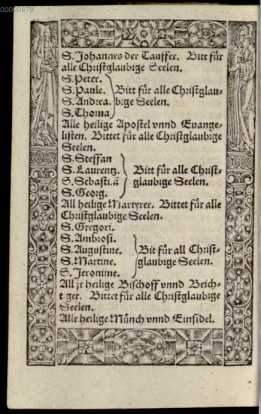 S. Johannes der Tauffer. Bitt für
alle Christglaubige Seelen.
S. Peter.
S. Paule. Bitt für alle Christglau-
S. Andrea. bige Seelen.
S. Thoma
Alle heilige Apostel vnnd Euange-
listen. Bittet für alle Christglaubige
Seelen.
S. Steffan
S. Laurentz. Bitt für alle Christ-
S. Sebastiā glaubige Seelen.
S. Georg.
All heilige Martyrer. Bittet für alle
Christglaubige Seelen.
S. Gregori.
S. Ambrosi.
S. Augustine. Bit für all Christ-
S. Martine. glaubige Seelen.
S. Jeronime.
All heilige Bischoff vnnd Beich-
tiger. Bittet für alle Christglaubige
Seelen.
Alle heilige Münch vnnd Einsidel.